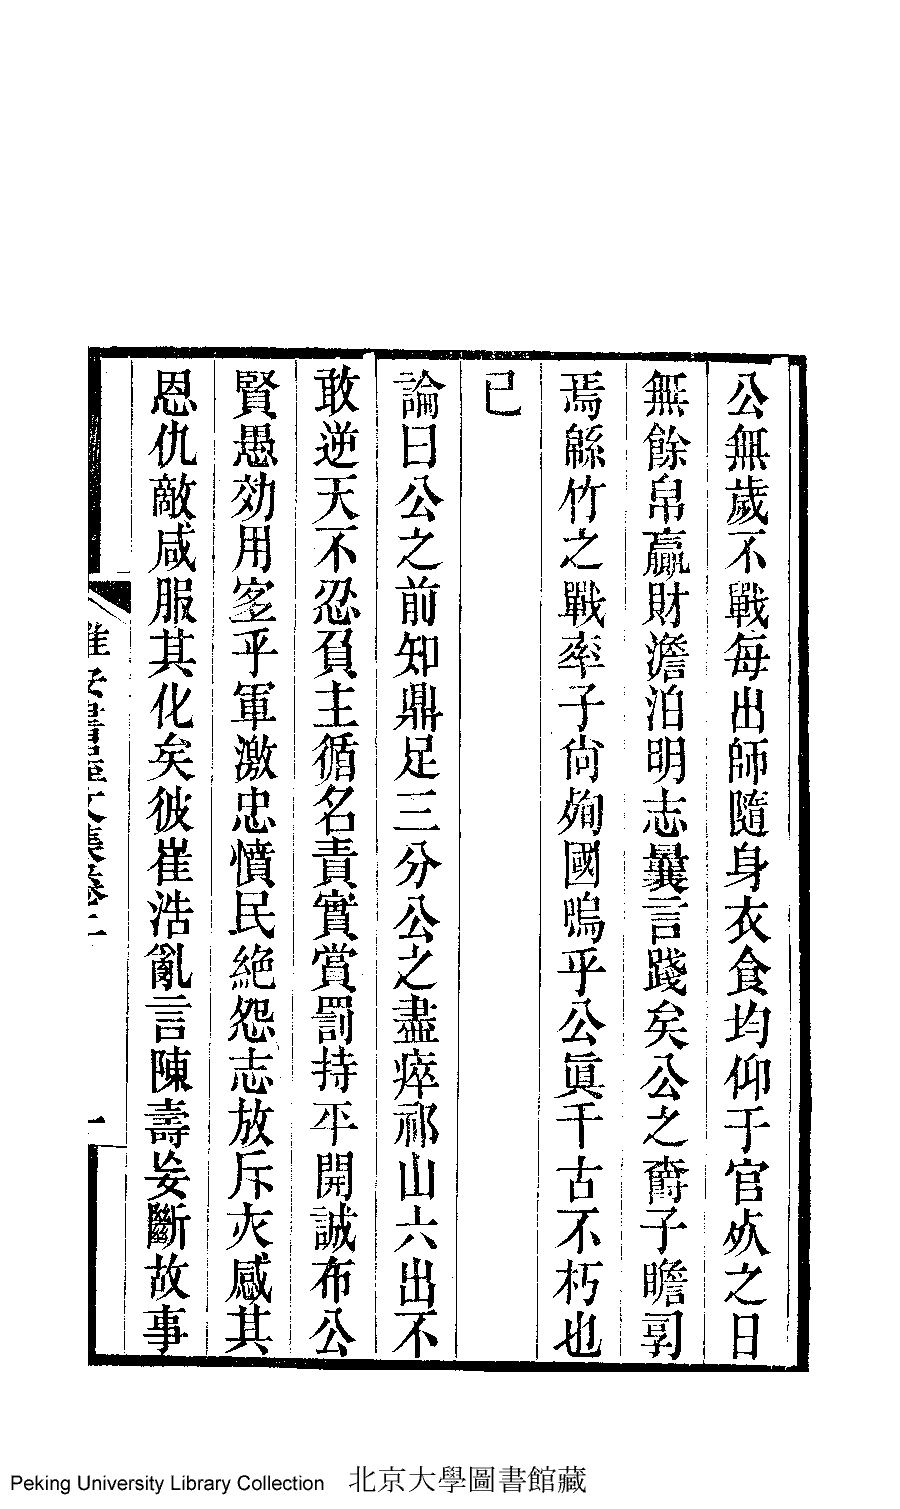 公無歲不戰每出師隨身衣食均仰于官歿之日
無餘帛贏財澹泊明志曩言踐矣公之爵子瞻𠭇
焉緜竹之戰率子尙殉國嗚乎公眞千古不朽也
已
論曰公之前知鼎足三分公之盡瘁祁山六出不
敢逆天不忍負主循名責實賞罰持平開誠布公
賢愚効用室乎軍激忠憤民絶怨志放斥灰感其
恩仇敵咸服其化矣彼崔浩亂言陳壽妄斷故事
文集卷
一
Peking University Library Collection 北京大學圖書館藏